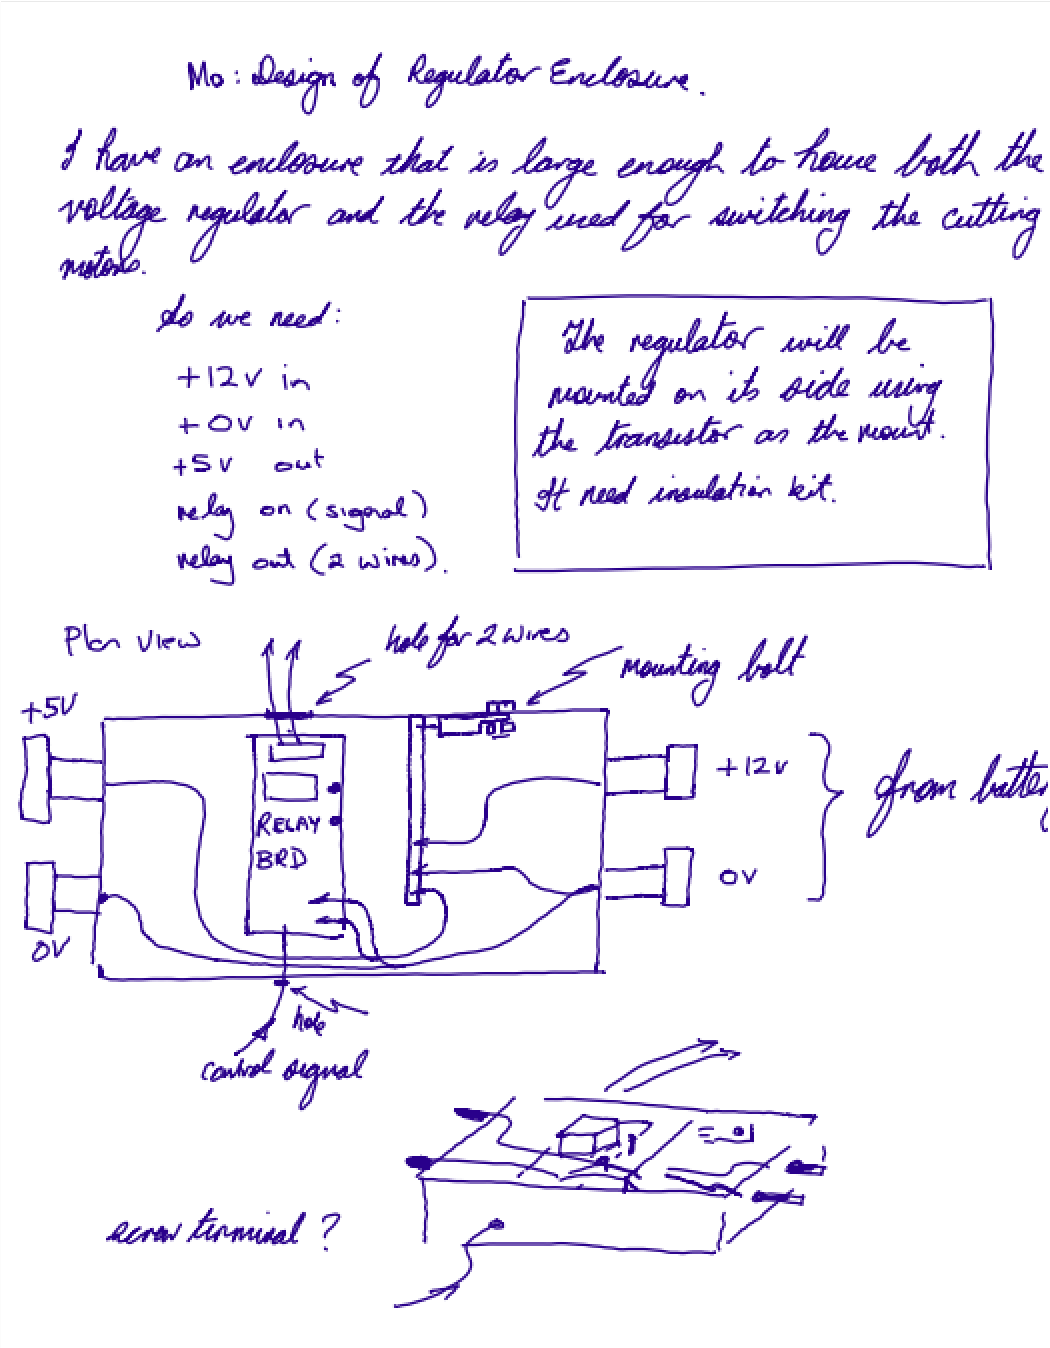 Mo: Design of Regulator Enclosure.
I have an enclosure that is large enough to house both the
voltage regulator and the relay used for switching the cutting
motors.
So we need:
+12V in
+0V in
+5V out
relay on (signal)
relay out (2 wires).
The regulator will be
mounted on its side using
the transistor as the mount.
It need insulation kit.
Plan View
hole for 2 wires
mounting bolt
+5V
+12V
from battery
RELAY
BRD
0V
0V
hole
control signal
screw terminal?